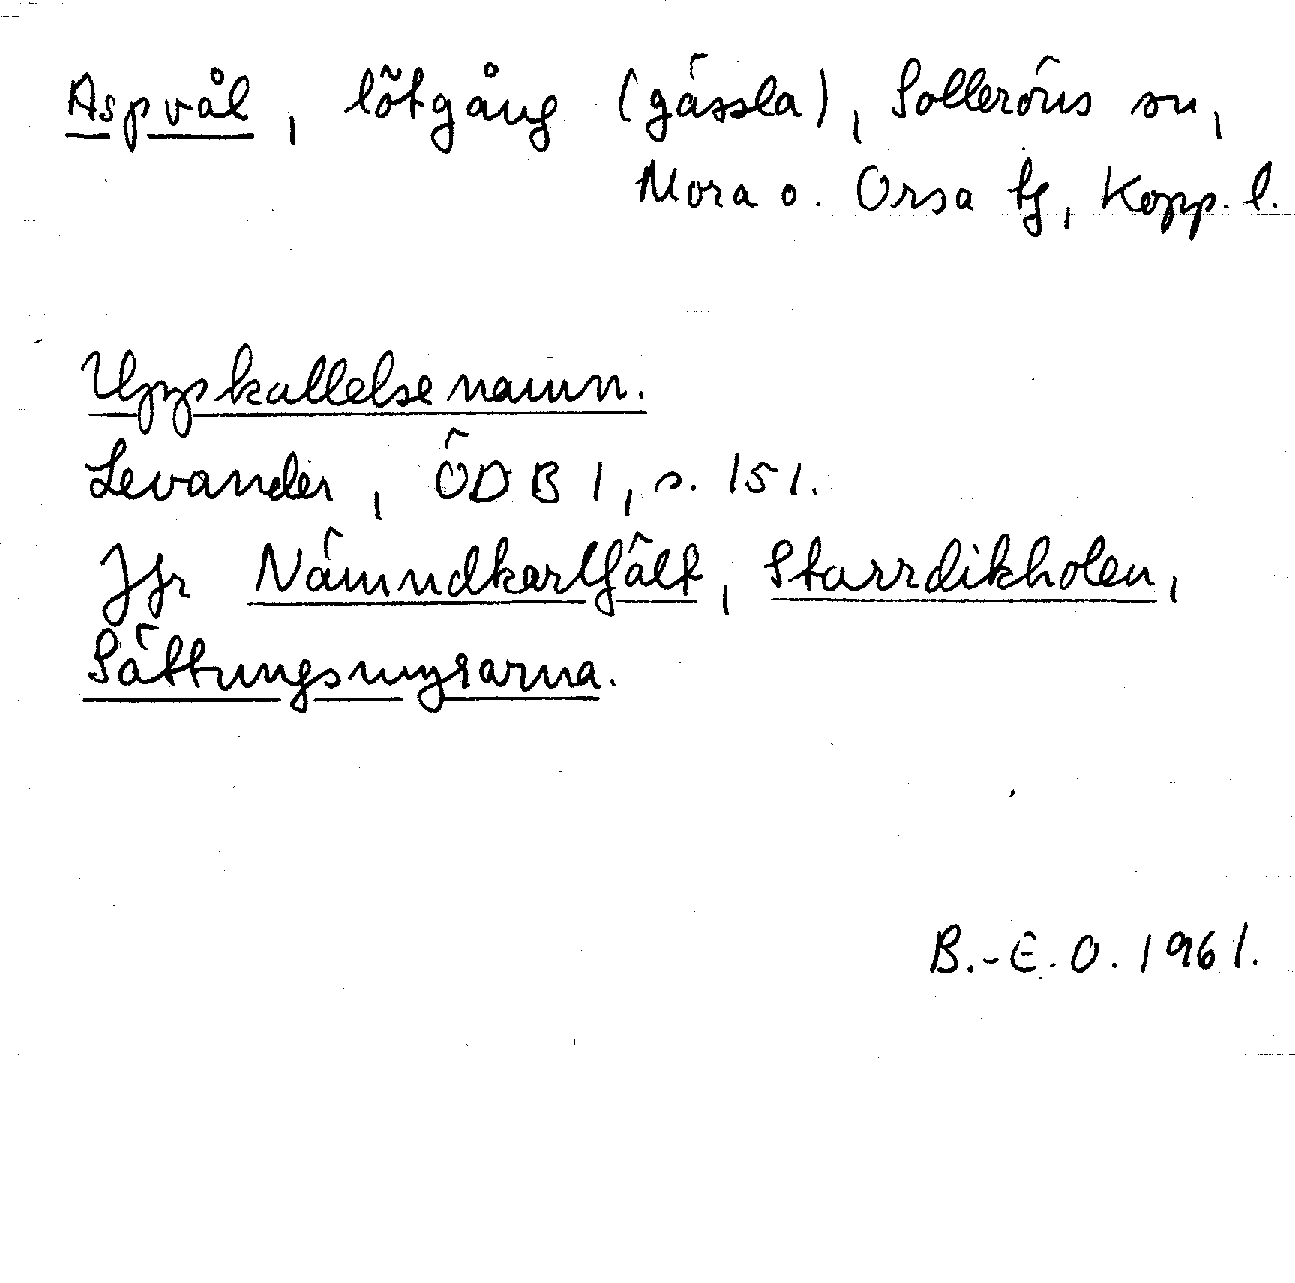 Aspvål, lötgång (gässla), Solleröns sn,
Mora o. Orsa tg, Kopp. l.
Uppkallelsenamn.
Levander, ÖDB 1, s. 151.
Jfr Nämndkarlfält, Starrdikholen,
Sättungsmyrarna.
B.-E.O. 1961.